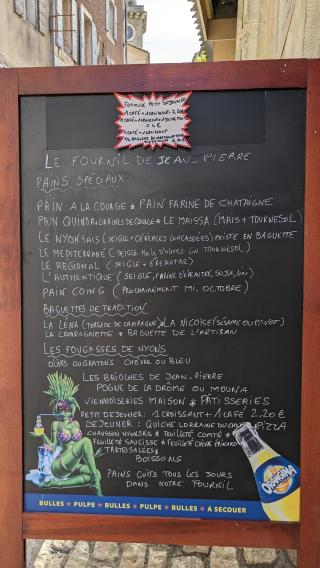 FORMULE PETIT DEJEUNER
1 CAFÉ + 1 CROISSANT 2,20€
LE FOURNIL DE JEAN-PIERRE
PAINS SPÉCIAUX
PAIN A LA COURGE * PAIN FARINE DE CHATAIGNE
PAIN QUINOA + GRAINES DE COURGE * LE MAISSA (MAÏS + TOURNESOL)
LE NYONSAIS (SEIGLE + CÉRÉALES CONCASSÉES) EXISTE EN BAGUETTE
LE MEDITERRANÉ (SEIGLE HUILE D'OLIVES LIN TOURNESOL)
LE REGIONAL (SEIGLE + ÉPEAUTRE)
L'AUTHENTIQUE (SEIGLE, FARINE D'ÉPEAUTRE, SOJA, LIN)
PAIN COING (PROCHAINEMENT MI-OCTOBRE)
BAGUETTES DE TRADITION
LA LENA (TORSADE DE CAMPAGNE) * LA NIÇOISE (SÉSAME OU PAVOT)
LA CAMPAGNETTE * BAGUETTE DE L'ARTISAN
LES FOUGASSES DE NYONS
OLIVES OU GRATONS CHÈVRE OU BLEU
LES BRIOCHES DE JEAN-PIERRE
POGNE DE LA DRÔME OU MOUNA
VIENNOISERIES MAISON * PATISSERIES
PETIT DEJEUNER: 1 CROISSANT + 1 CAFÉ 2,20 €
DEJEUNER: QUICHE LORRAINE OU * PIZZA
CHAUSSON NYONSAIS * FEUILLETÉ COMTÉ *
FEUILLETÉ SAUCISSE * FEUILLETÉ CHÈVRE ÉPINARD
TARTES SALÉES
BOISSONS
PAINS CUITS TOUS LES JOURS
DANS NOTRE FOURNIL
ORANGINA
BULLES * PULPE * BULLES * PULPE * BULLES * A SECOUER